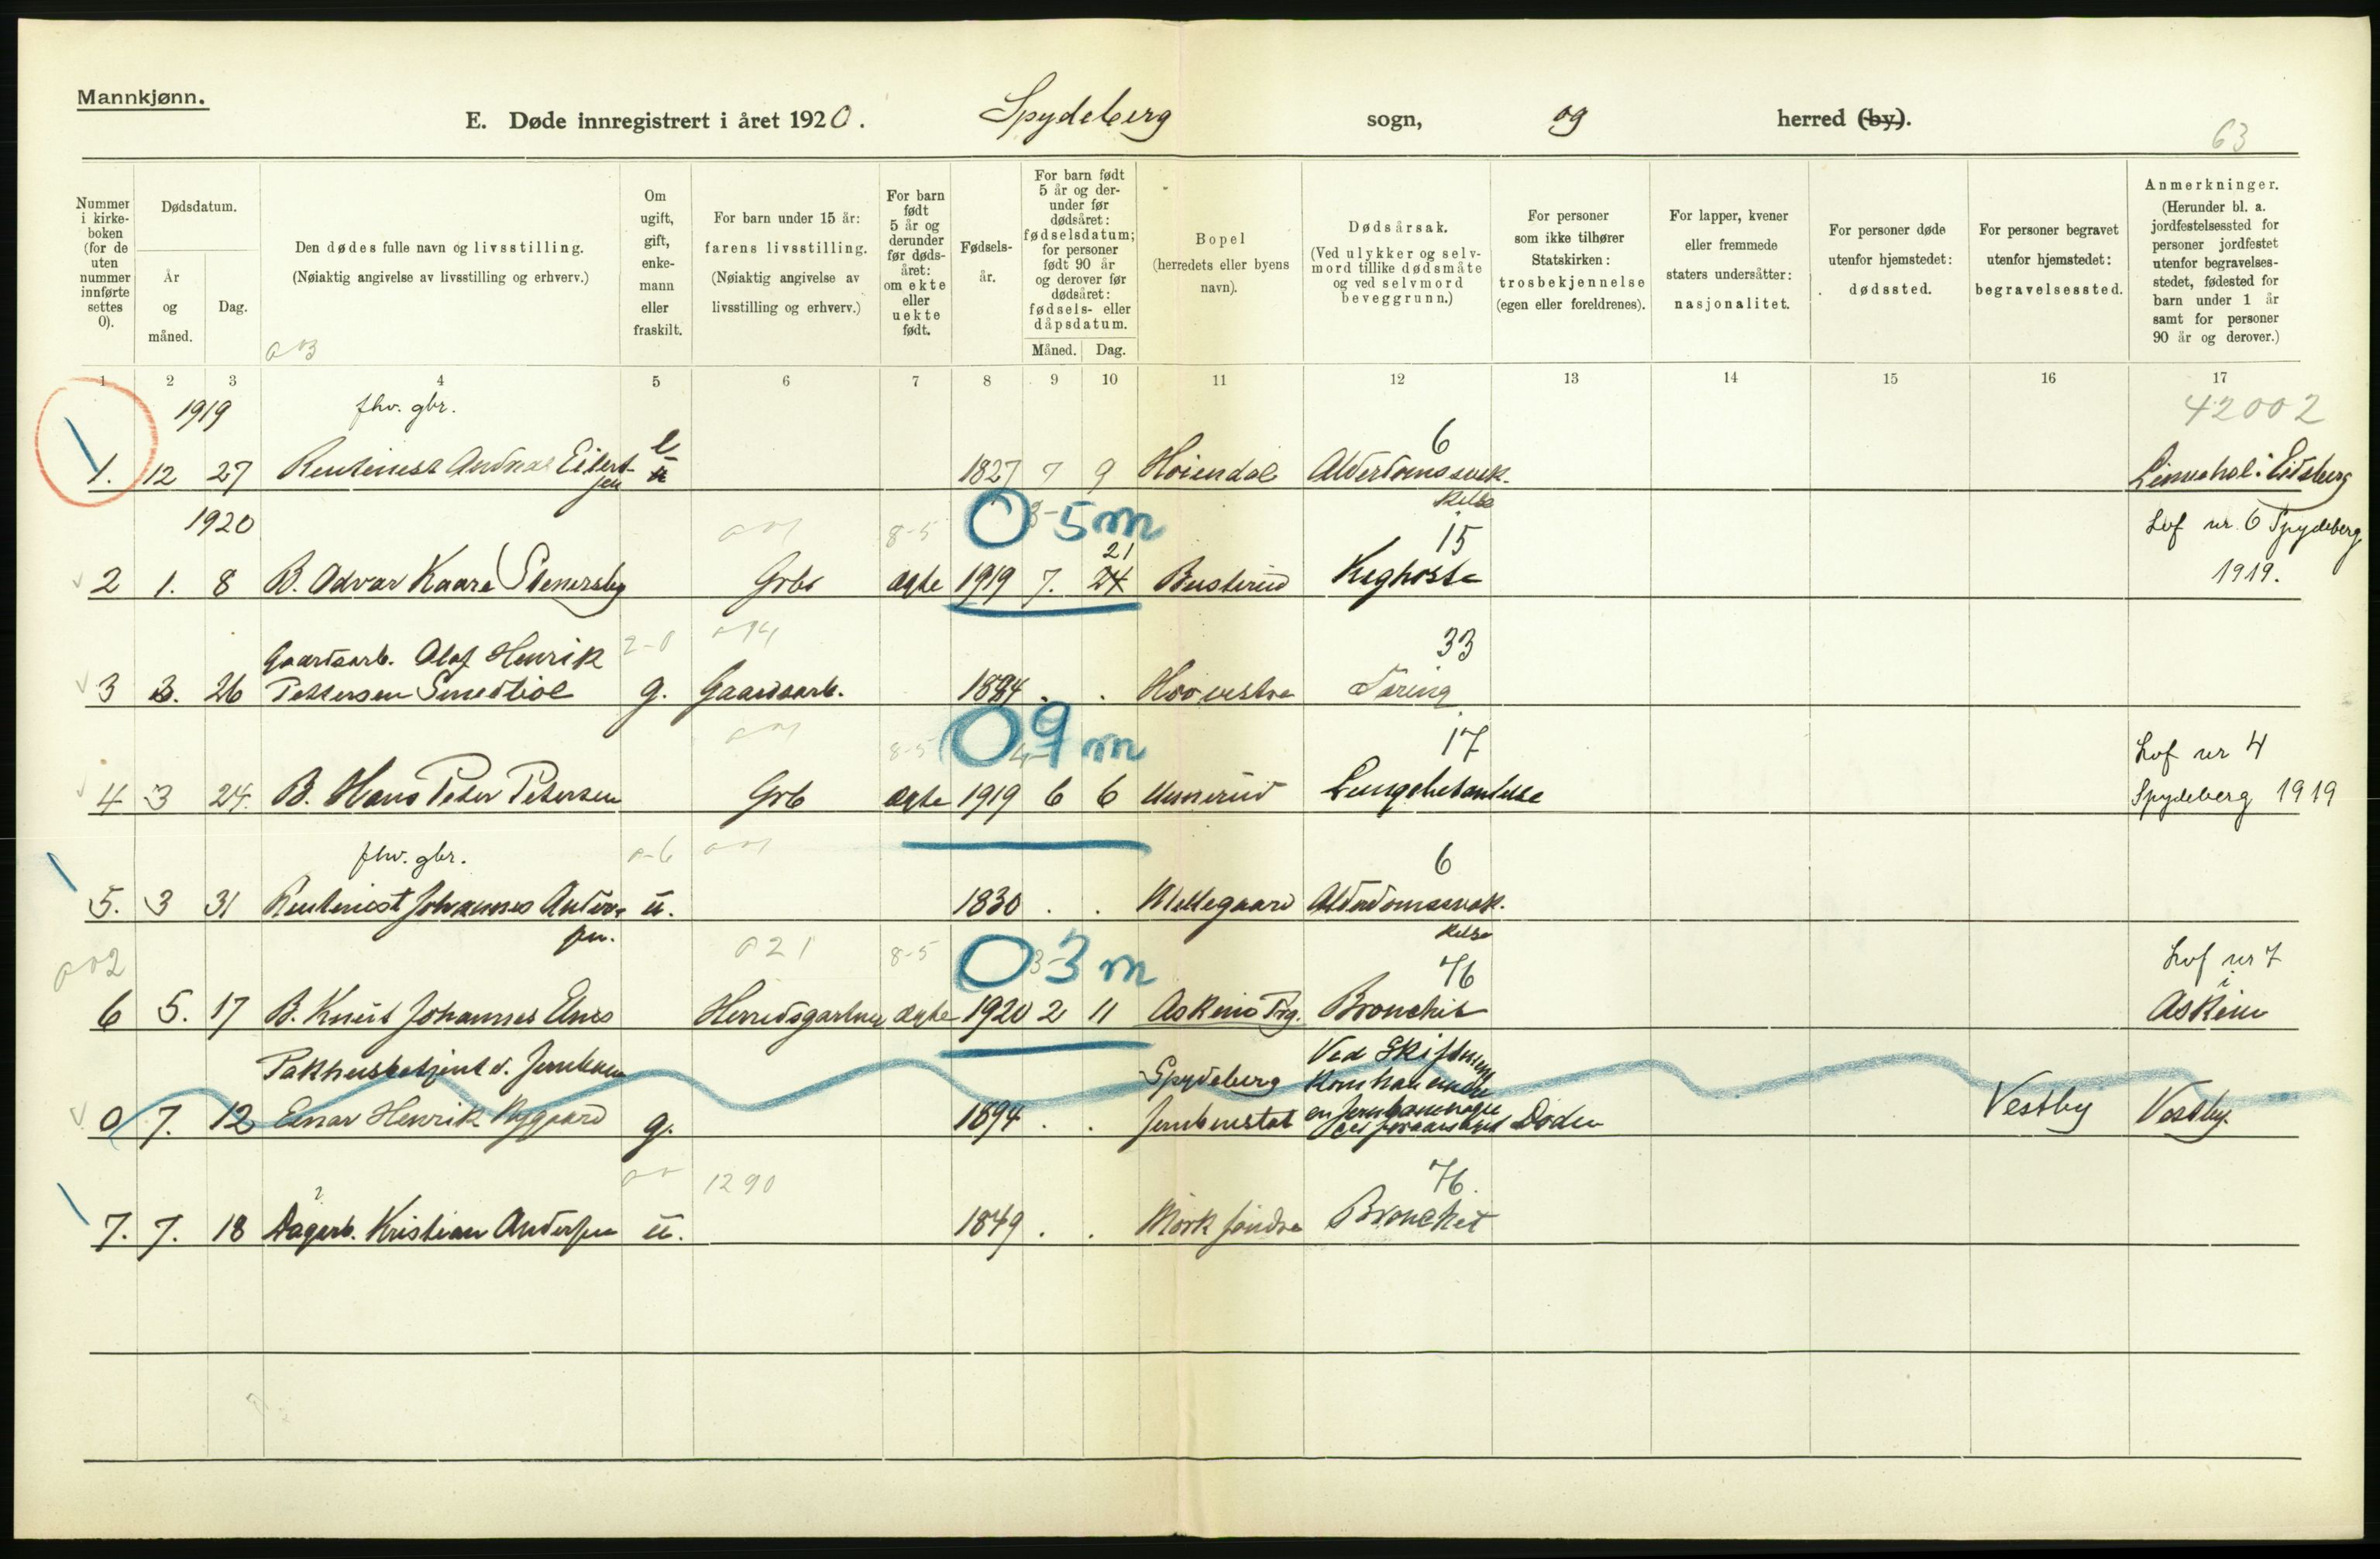 Mannkjønn.
E. Døde innregistrert i året 1920. Spydeberg sogn, og herred (by).
63
Nummer i kirkeboken (for de uten nummer innførte settes 0).
Dødsdatum.
År og måned.
Dag.
Den dødes fulle navn og livsstilling.
(Nøiaktig angivelse av livsstilling og erhverv.)
Om ugift, gift, enkemann eller fraskilt.
For barn under 15 år: farens livsstilling.
(Nøiaktig angivelse av livsstilling og erhverv.)
For barn født 5 år og derunder før dødsåret: om ekte eller uekte født.
Fødselsår.
For barn født 5 år og derunder før dødsåret: fødselsdatum; for personer født 90 år og derover før dødsåret: fødsels- eller dåpsdatum.
Måned. Dag.
Bopel (herredets eller byens navn).
Dødsårsak.
(Ved ulykker og selvmord tillike dødsmåte og ved selvmord beveggrunn.)
For personer som ikke tilhører Statskirken: trosbekjennelse (egen eller foreldrenes).
For lapper, kvener eller fremmede staters undersåtter: nasjonalitet.
For personer døde utenfor hjemstedet: dødssted.
For personer begravet utenfor hjemstedet: begravelsessted.
Anmerkninger.
(Herunder bl. a. jordfestelsessted for personer jordfestet utenfor begravelsesstedet, fødested for barn under 1 år samt for personer 90 år og derover.)
1 2 3 4 5 6 7 8 9 10 11 12 13 14 15 16 17
1919 fhv. gbr. 42002
6
1. 12 27 Rentenist Andreas Eilertsen e 1827 7 9 Høiendal Alderdomssvækkelse Eidsberg
1920 8-5 0 5 m 15 Lof nr 6 Spydeberg
21
2 1. 8 B. Odvar Kaare Stenersby Grbr ægte 1919 7. 24 Busterud Kighoste 1919.
Gaardsarb. Olaf Henrik 2-0 33
3 3. 26 Pettersen g. Gaardsarb. 1884 . . Tæring
8-5 0 9 m 17 Lof nr 4
4 3 24. B. Hans Peter Petersen Grb ægte 1919 6 6 Lungebetændelse Spydeberg 1919
fhv. gbr. 6
5. 3 31 Rentenist Johannes Andersen. u. 1830 . . Mellegaard Alderdomssvækkelse
002 021 8-5 0 3 m 76 Lof nr 7
i
6 5. 17 B. Knut Johannes Enes Herredsgartner ægte 1920 2 11 Askim Bronchit Askim
Pakhusbetjent v. Jernbanen Spydeberg Ved Skiftning
0 7. 12 Einar Henrik Nygaard g. 1894 . . Jernbnestat Døden Vestby Vestby.
1290 76.
7. 7. 18 Dagarb. Kristian Andersen u. 1849 . . Mørk søndre Bronchit